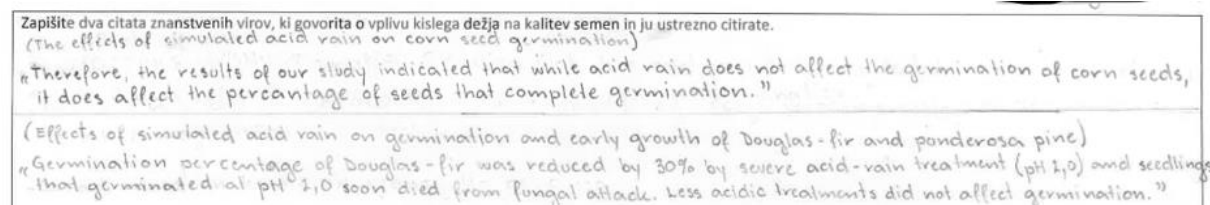 Zapišite dva citata znanstvenih virov, ki govorita o vplivu kislega dežja na kalitev semen in ju ustrezno citirate.
(The effects of simulated acid rain on corn seed germination)
„Therefore, the results of our study indicated that while acid rain does not affect the germination of corn seeds,
it does affect the percantage of seeds that complete germination.”
(Effects of simulated acid rain on germination and early growth of Douglas-fir and ponderosa pine)
„Germination percentage of Douglas-fir was reduced by 30% by severe acid-rain treatment (pH 2,0) and seedlings
that germinated at pH 2,0 soon died from fungal attack. Less acidic treatments did not affect germination.”